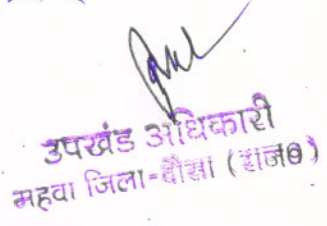 उपखंड अधिकारी
महवा जिला-दौसा (राज०)